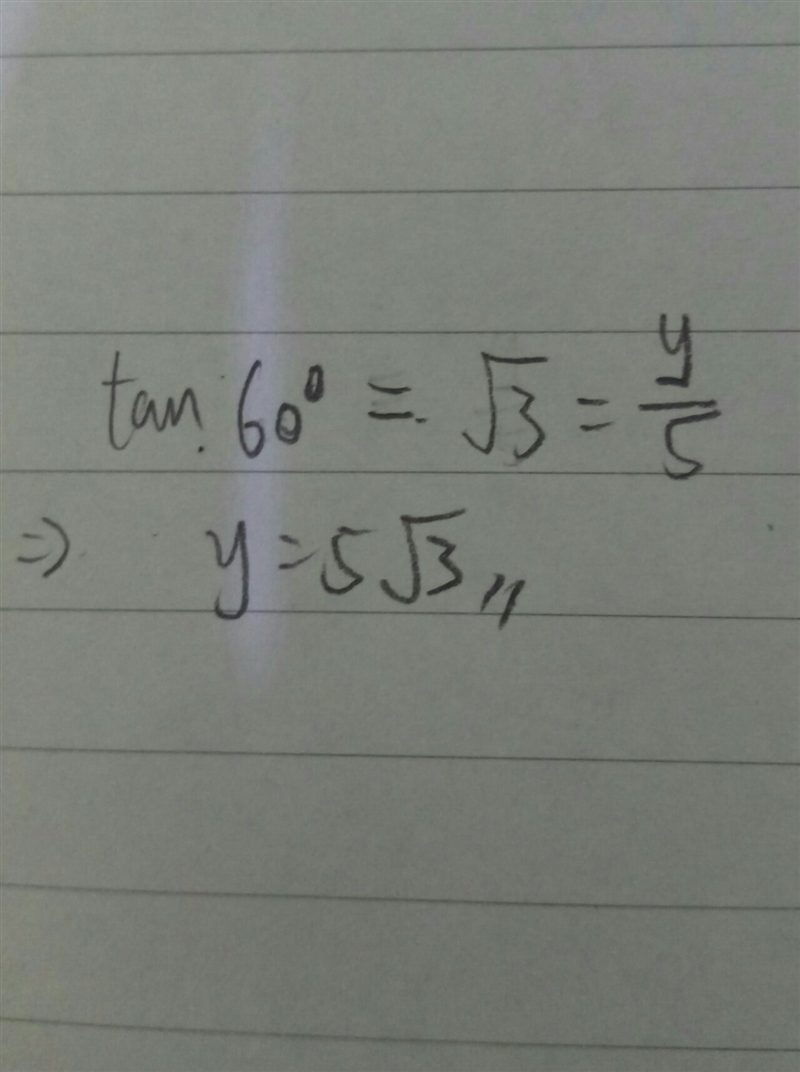 tan 60° = √3 = y/5
⇒ y = 5√3 〃